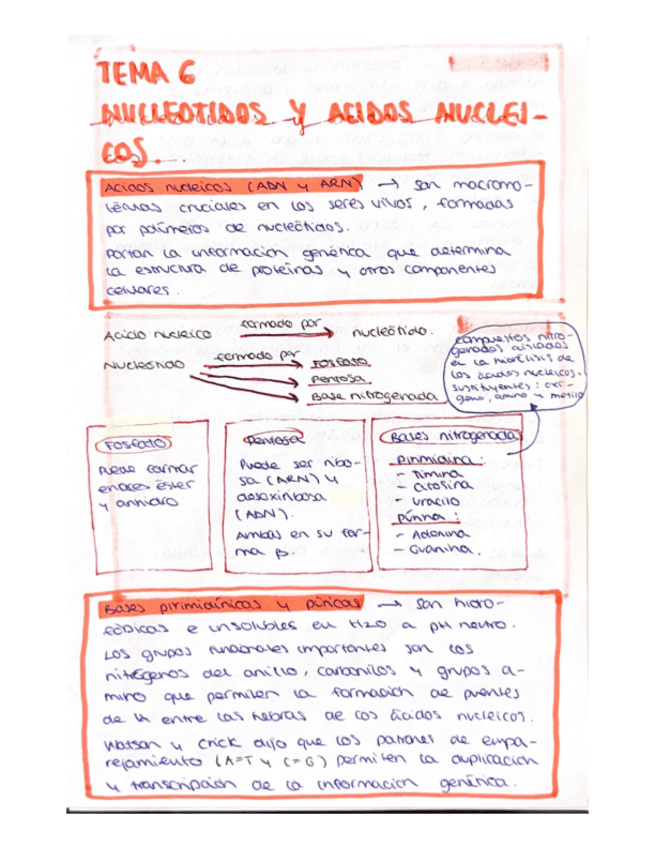 TEMA 6
NUCLEOTIDOS Y ACIDOS NUCLEI-
COS.
Acidos nucleicos (ADN y ARN) → son macromo-
léculas cruciales en los seres vivos, formadas
por polímeros de nucleótidos.
Portan la información genética que determina
la estructura de proteínas y otros componentes
celulares.
Acido nucleico formado por nucleótido.
Nucleotido formado por Fosfato
Pentosa
Base nitrogenada
compuestos nitro-
genados aislados
en la hidrólisis de
los ácidos nucleicos.
Sustituyentes: oxí-
geno, amino y metilo
Fosfato
Puede formar
enlaces éster
y anhidro
Pentosa
Puede ser ribo-
sa (ARN) y
desoxirribosa
(ADN).
Ambas en su for-
ma β.
Bases nitrogenadas
Pirimidina:
- Timina
- Citosina
- Uracilo
Púrina:
- Adenina
- Guanina.
Bases pirimidínicas y púricas → son hidro-
fóbicas e insolubles en H2O a pH neutro.
Los grupos funcionales importantes son los
nitrógenos del anillo, carbonilos y grupos a-
mino que permiten la formación de puentes
de H entre las hebras de los ácidos nucleicos.
Watson y Crick dijo que los patrones de empa-
rejamiento (A=T y C≡G) permiten la duplicación
y transcripción de la información genética.